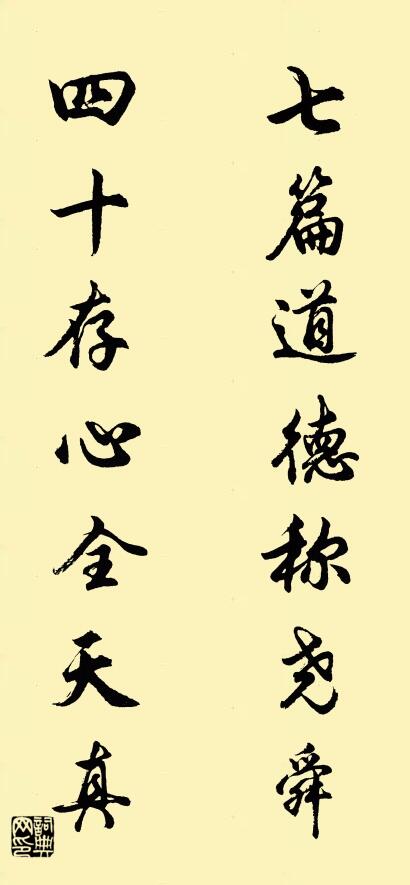 七篇道德称尧舜
四十存心全天真
词典网印